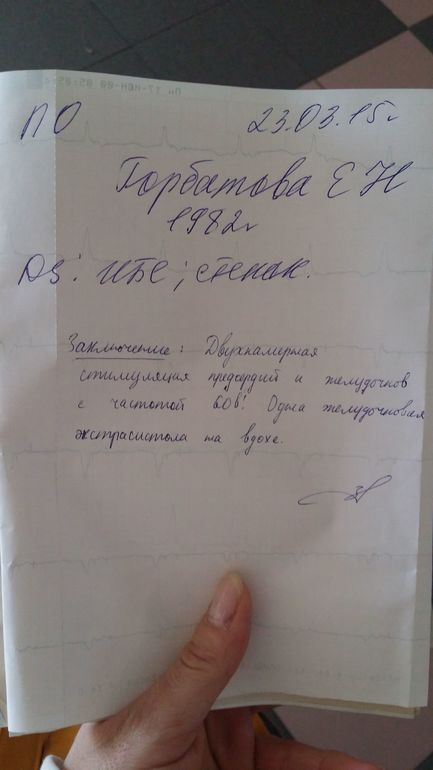 ПО 23.03.15г
Горбатова Е Н
1982г
DS: ИБС; стенок.
Заключение: Двухкамерная
стимуляция предсердий и желудочков
с частотой 60в'. Одна желудочковая
экстрасистола на вдохе.